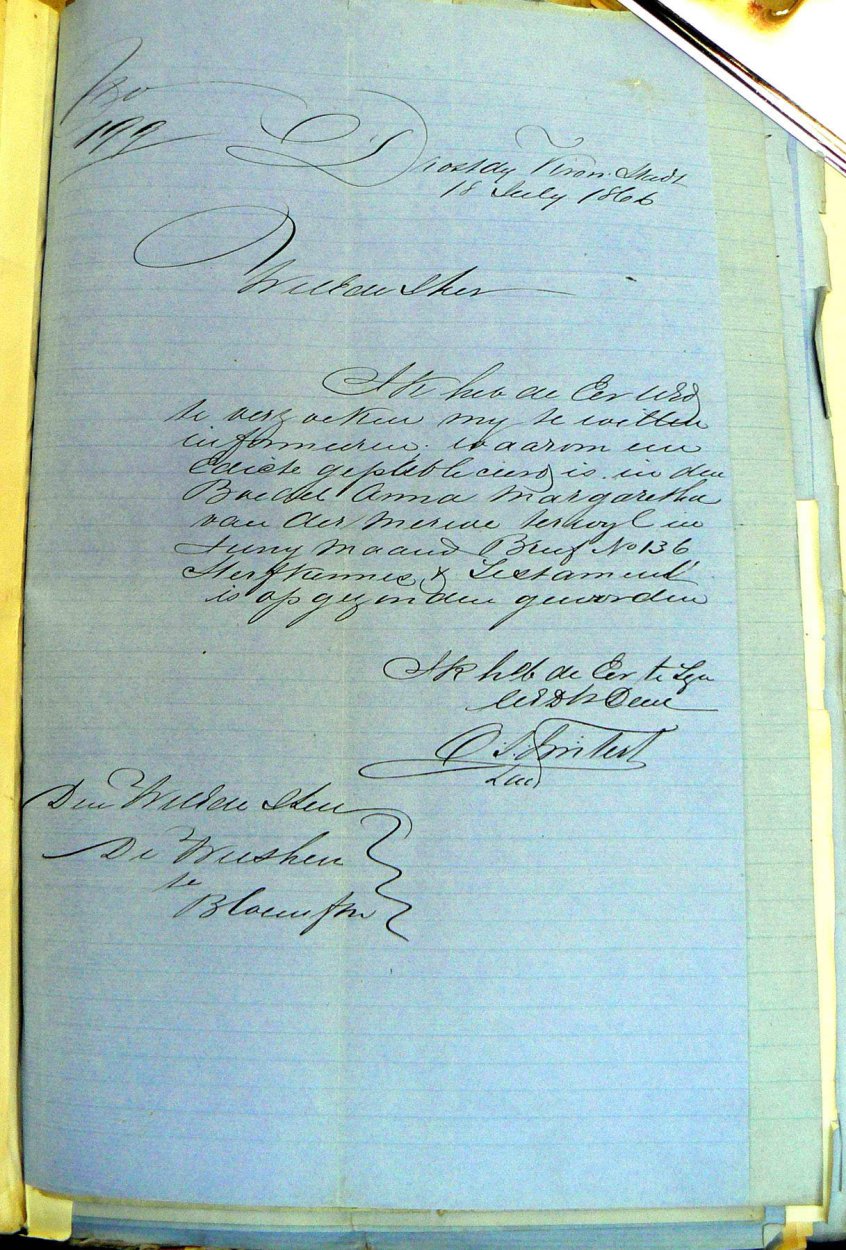 No
199
Drostdy Kroon Stadt
18 July 1866
WelEdele Heer
Ik heb de Eer UEd
te verzoeken my te willen
informeren waarom een
Edicte gepubliceerd is in den
Boedel Anna Margaretha
van der Merwe terwyl in
Juny Maand Brief No 136
Sterfkennis & Testament
is opgezonden geworden
Ik heb de Eer te Zyn
UEd Dw Dien
Land
Den WelEdele Heer
De Weesheer
te
Bloemftn